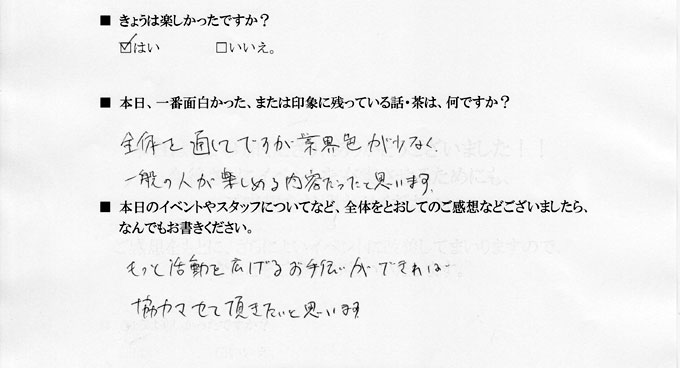 ■ きょうは楽しかったですか？
☑はい　□いいえ。
■ 本日、一番面白かった、または印象に残っている話・茶は、何ですか？
全体を通してですが業界色が少なく、
一般の人が楽しめる内容だったと思います。
■ 本日のイベントやスタッフについてなど、全体をとおしてのご感想などございましたら、
なんでもお書きください。
もっと活動を広げるお手伝いができれば
協力させて頂きたいと思います